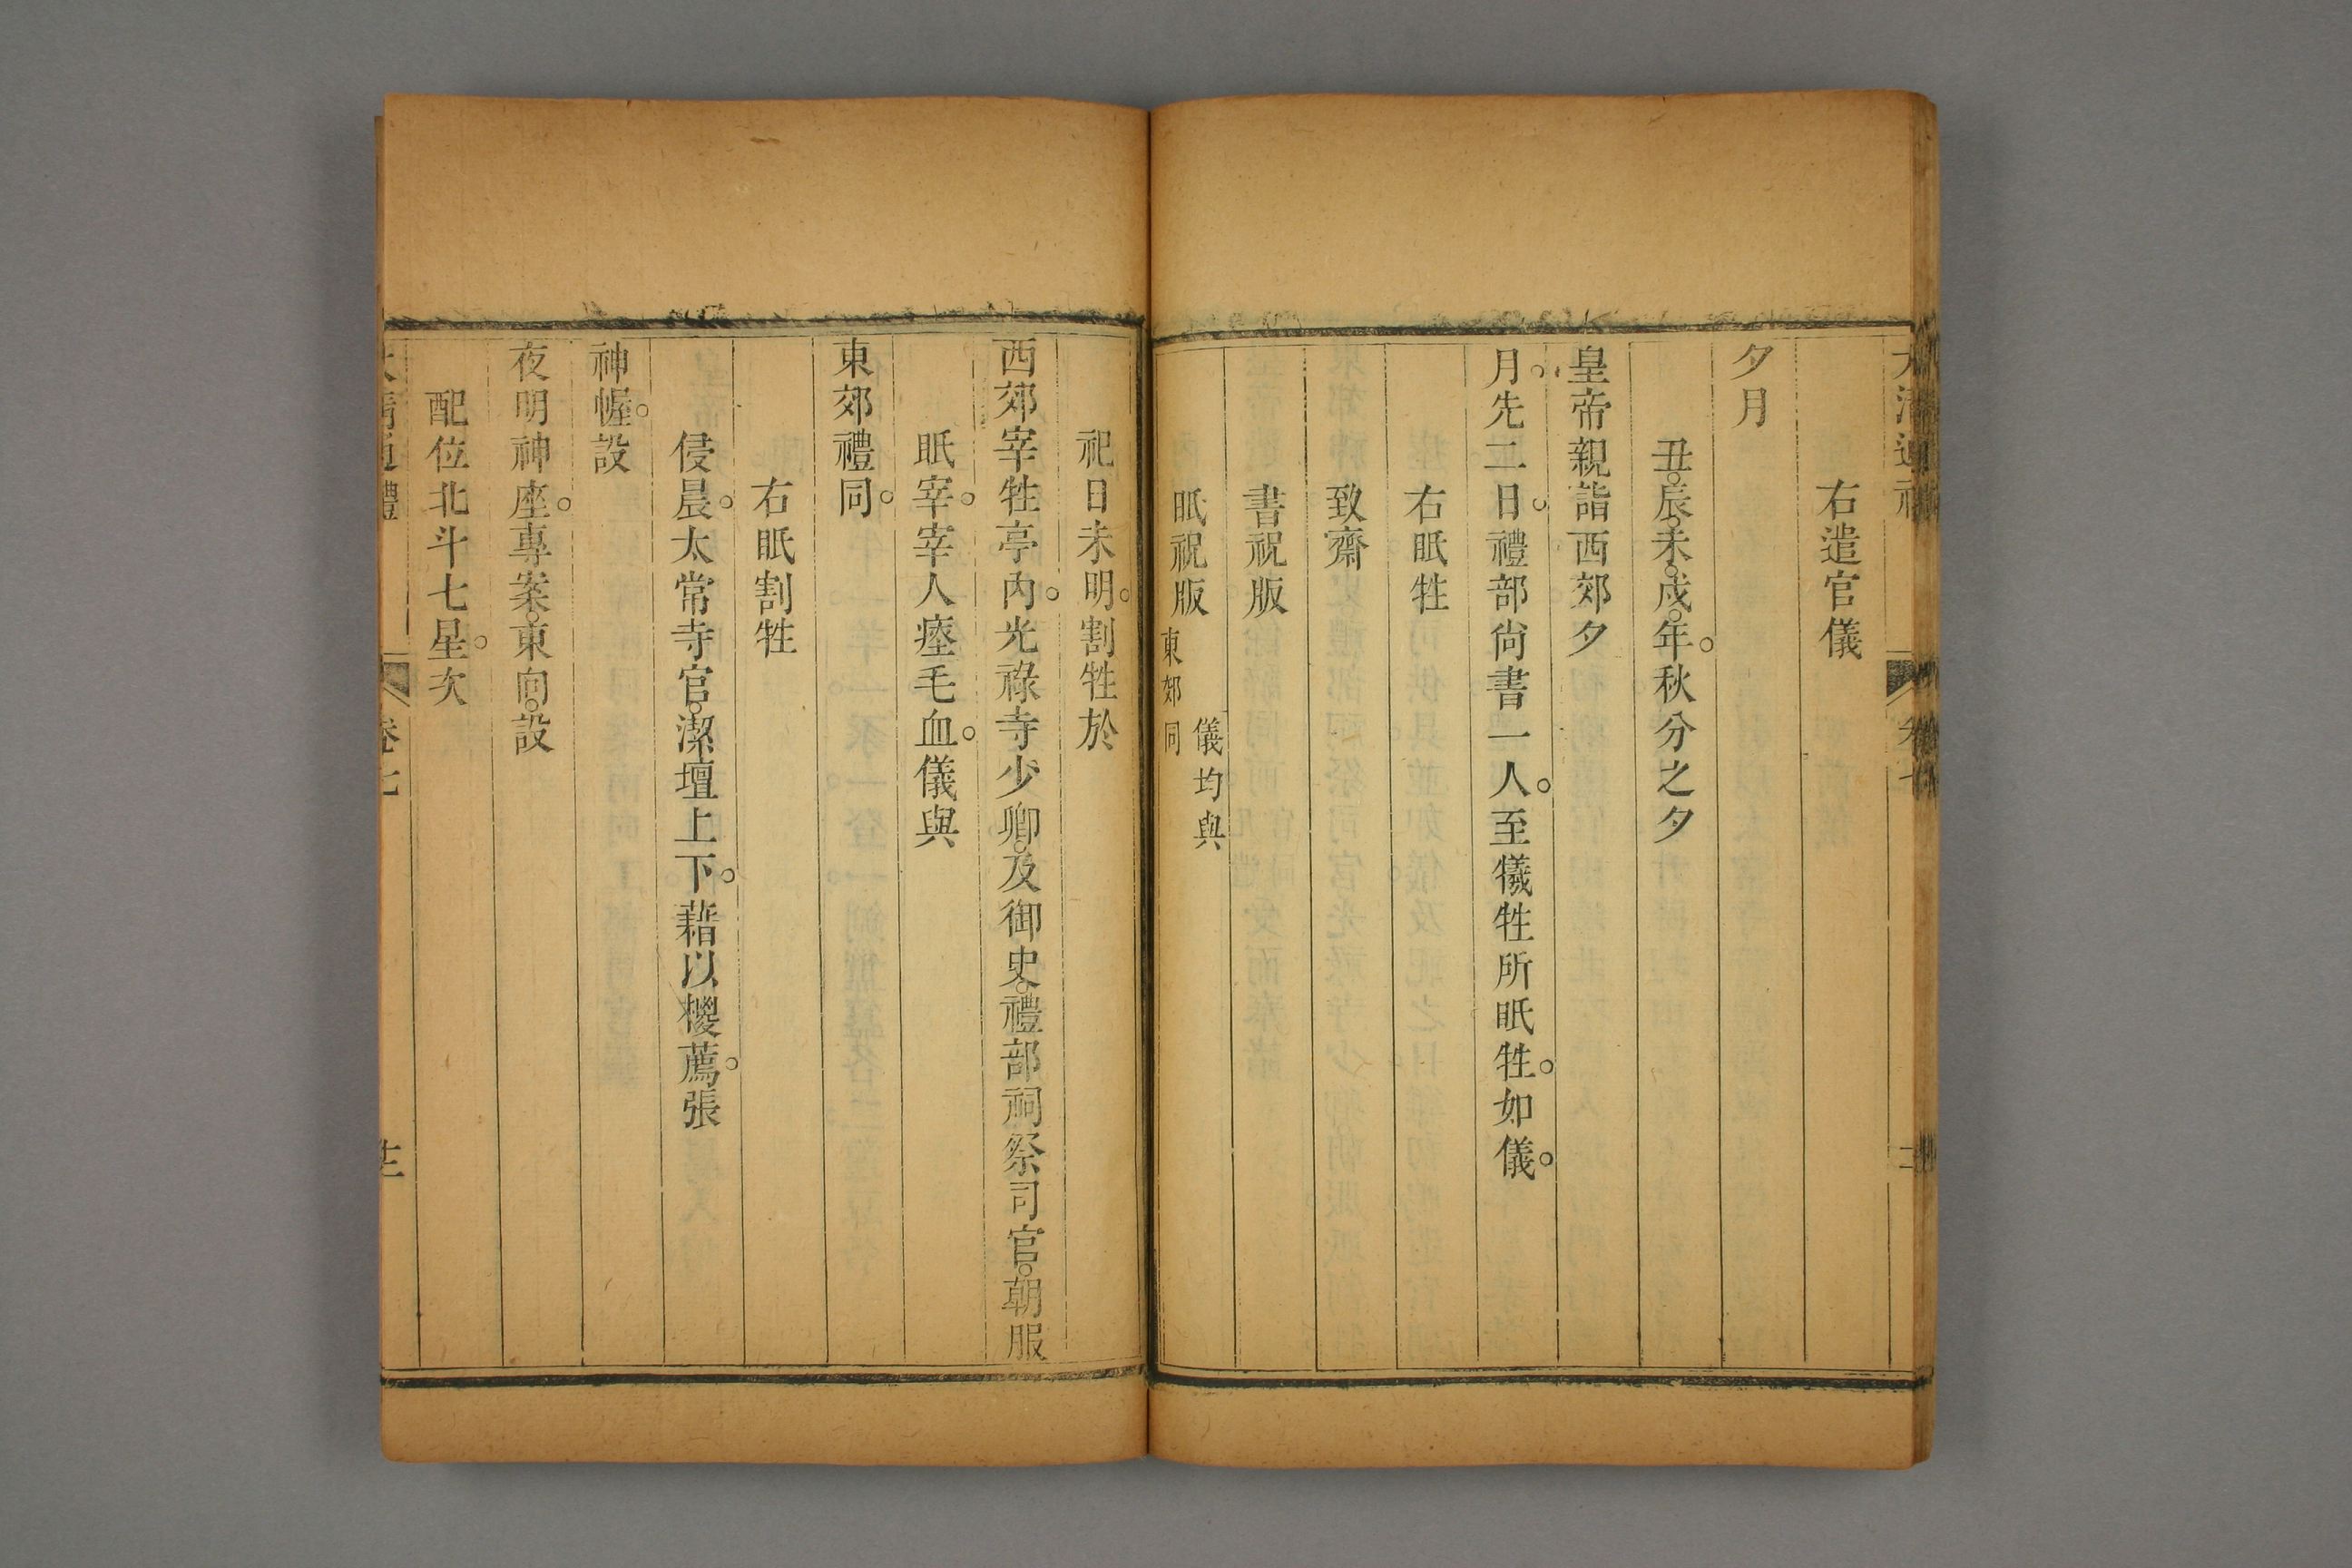 右遣官儀
夕月
丑。辰。未。戌。年。秋分之夕
皇帝親詣西郊夕
月。先二日。禮部尚書一人。至犧牲所眂牲。如儀。
右眂牲
致齋
書祝版
眂祝版儀均與東郊同
祀日未明。割牲於
西郊宰牲亭內。光祿寺少卿。及御史。禮部祠祭司官。朝服
眂宰。宰人瘞毛血。儀與
東郊禮同。
右眂割牲
侵晨。太常寺官。潔壇上下。藉以椶薦。張
神幄。設
夜明神座。專案。東向。設
配位北斗七星。次
大清通禮 卷七